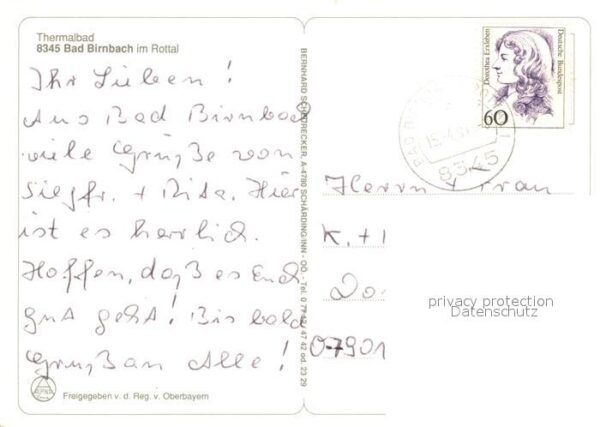 Thermalbad
8345 Bad Birnbach im Rottal
Ihr Lieben!
Aus Bad Birnbach
viele Grüße von
Siegfr. + Rita. Hier
ist es herrlich.
Hoffen, daß es Euch
gut geht! Bis bald
Gruß an Alle!
Freigegeben v. d. Reg. v. Oberbayern
BERNHARD SCHÄTRECKER, A-4780 SCHÄRDING/INN - OÖ. - Tel. 0 77 12 / 47 42 od. 23 29
Dorothea Erxleben
Deutsche Bundespost
60
8345
Herrn + Frau
K. +
Do
07901
privacy protection
Datenschutz